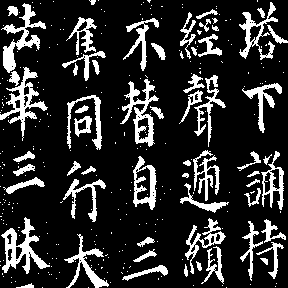 塔下誦持
經聲遞續
不替自三
集同行大
法華三昧